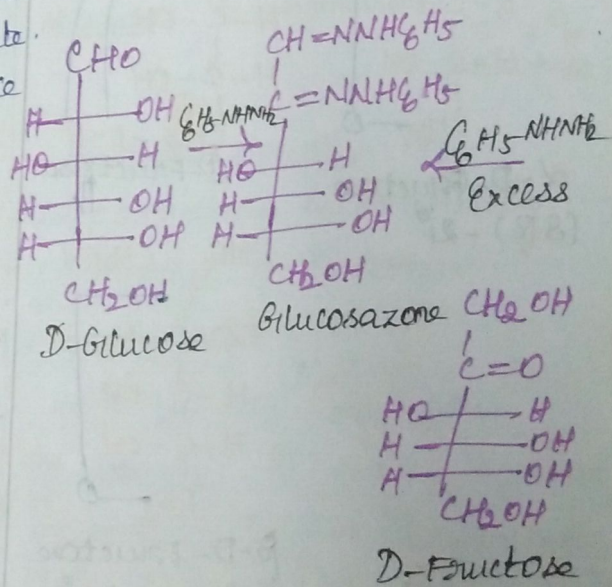 te.
ce
CHO
H OH
HO H
H OH
H OH
CH2OH
D-Glucose
C6H5-NHNH2
CH=NNHC6H5
C=NNHC6H5
HO H
H OH
H OH
CH2OH
Glucosazone
C6H5-NHNH2
Excess
CH2OH
C=O
HO H
H OH
H OH
CH2OH
D-Fructose